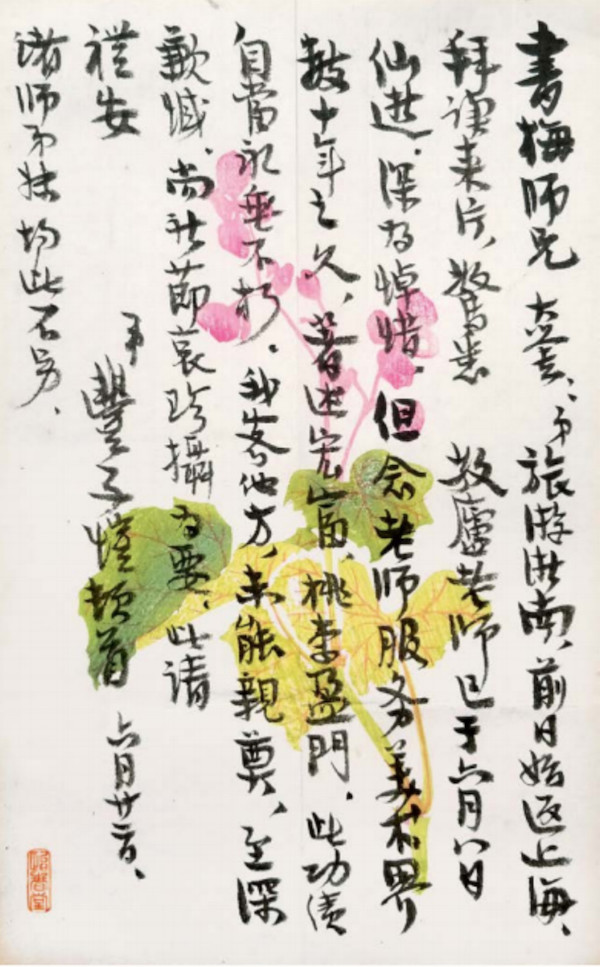 書梅师兄 大鉴：弟旅游浙南，前日始返上海，
拜读来片，敬悉 敬廬老师已于六月八日
仙逝，深为悼惜。但念老师服务美术界
数十年之久，著述宏富，桃李盈門，此功绩
自当永垂不朽。我客他方，未能親奠，至深
歉憾，尚祈節哀珍攝为要，此请
禮安
弟豐子愷顿首 六月廿二日、
诸师弟妹均此不另、